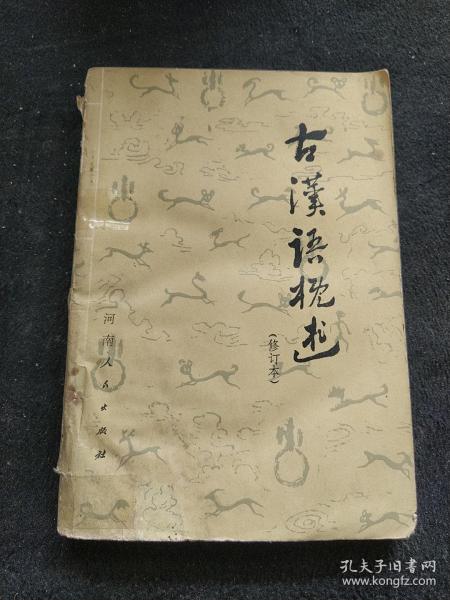 古漢語概述
(修订本)
河南人民出版社
孔夫子旧书网
www.kongfz.com